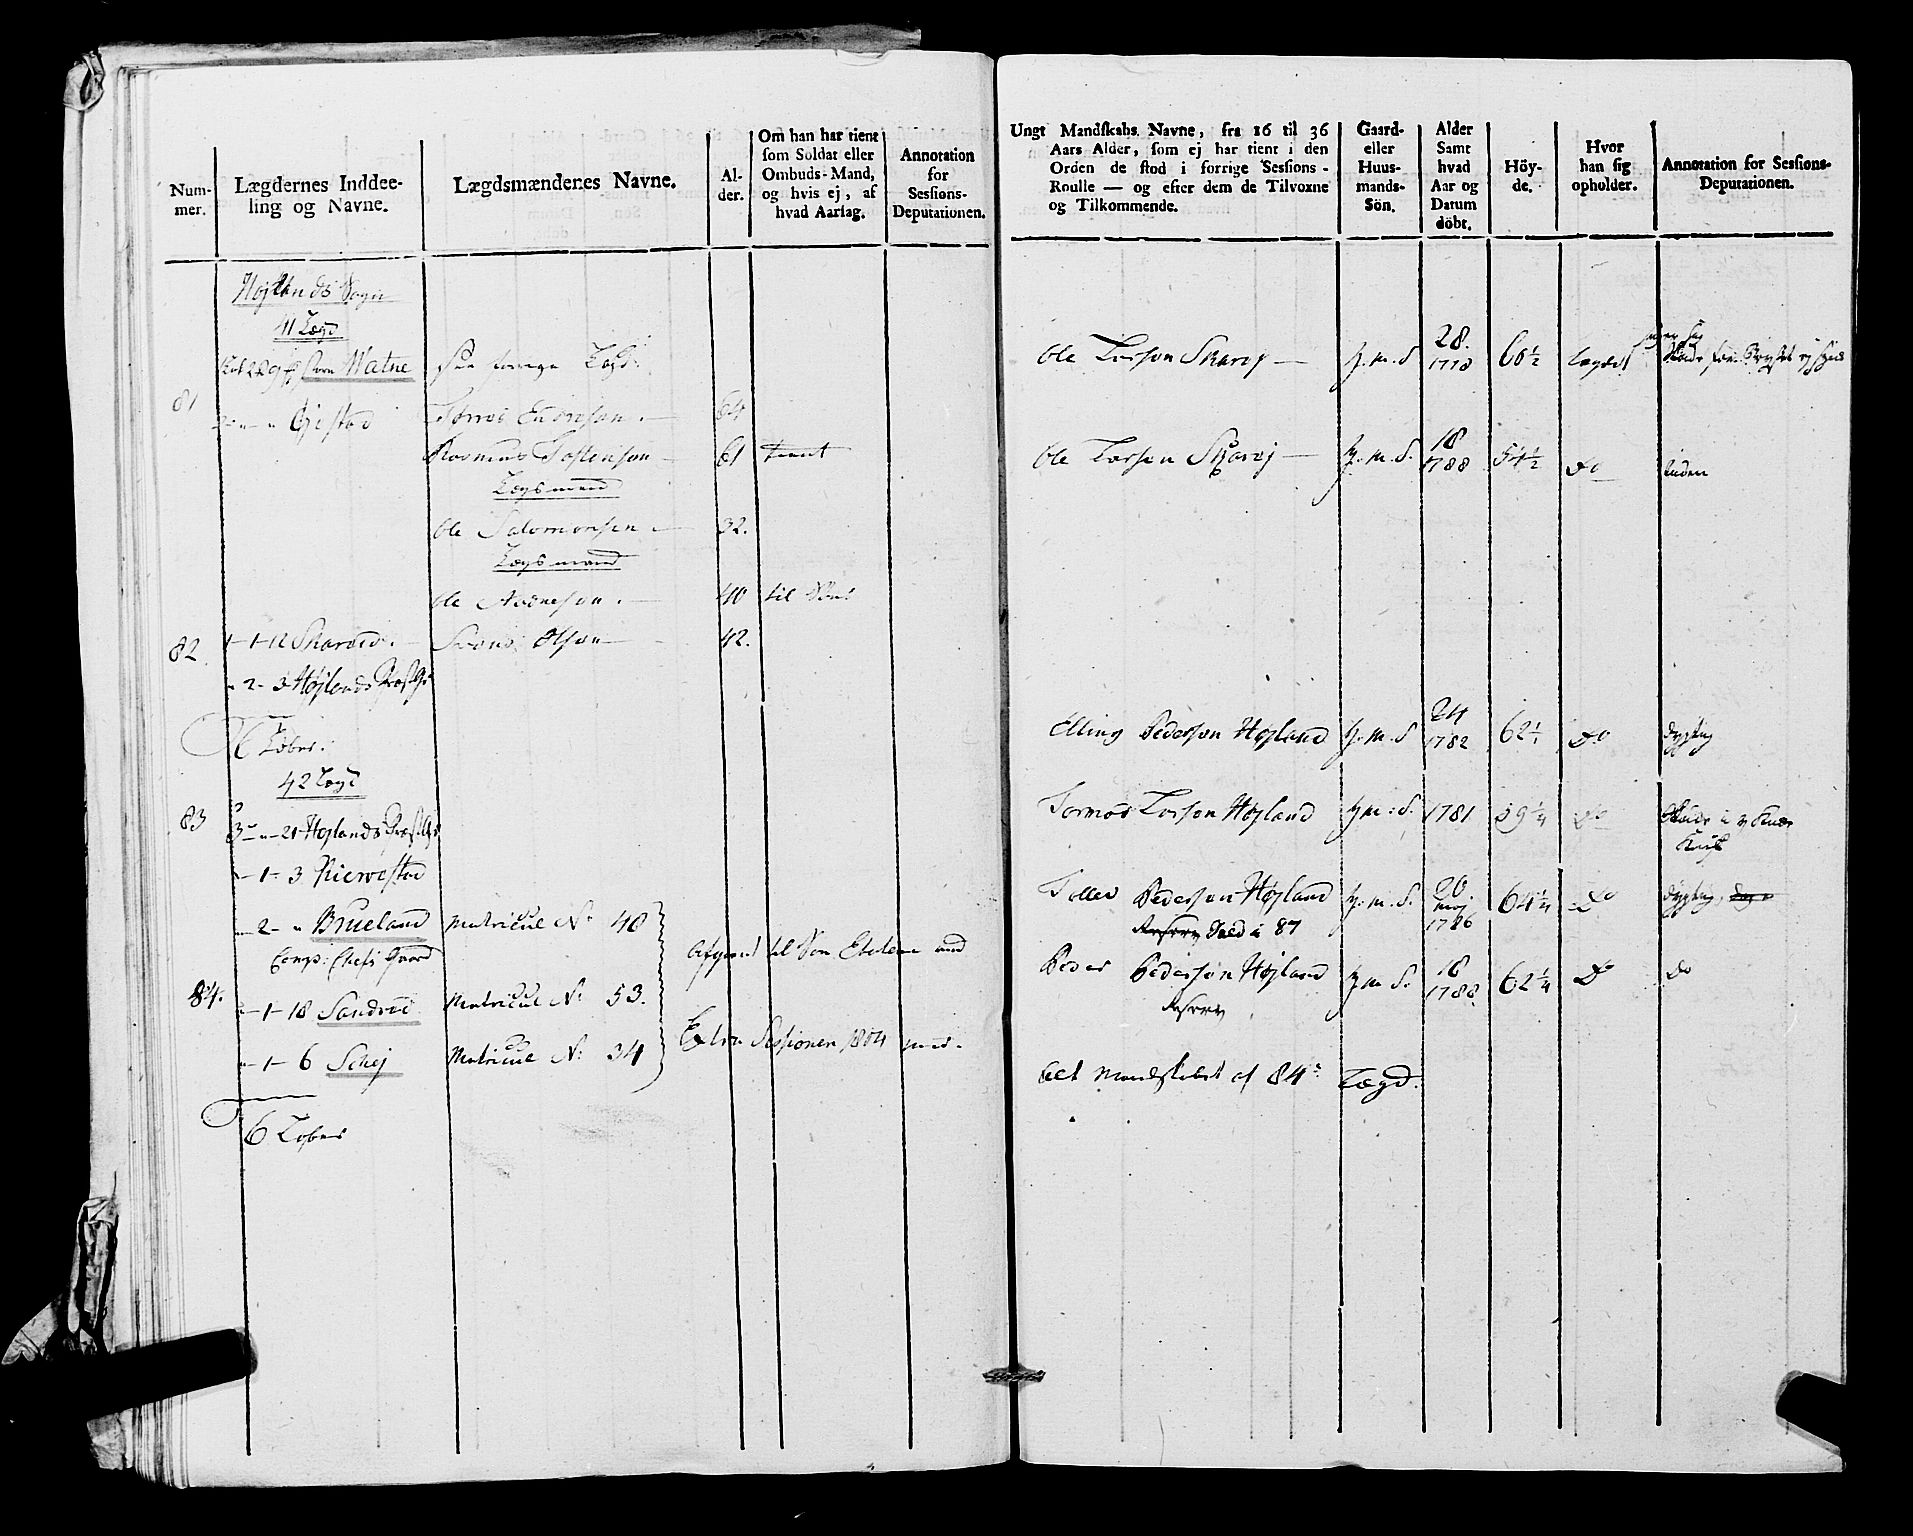 Num-
mer.
Lægdernes Inddee-
ling og Navne.
Lægdsmændenes Navne.
Al-
der.
Om han har tient
som Soldat eller
Ombuds-Mand,
og hvis ej, af
hvad Aarsag.
Annotation
for
Sessions-
Deputationen.
Højlands Sogn
41 Lægd
Watne
81
Gjestad
64
Rasmus Tostensen 61 tient
Lægsmand
Ole Salomonsen 32.
Lægsmand
Ole Aadnesen. 40
82. 1-1-12 Skaraed. Svend Olson 42.
" 2- 3 Højlands Præstgd
6 Løber.
42 Lægd
83
3 " 21 Højlands Præstgd
" 1- 3 Riewestad
" 2- " Brueland Matricul No 48
Comp: Chefs Gaard
84. " 1- 18 Sandved Matricul No 53.
" 1- 6 Schej Matricul No: 34
Extra Sessionen 1804
6 Løber
Ungt Mandskabs Navne, fra 16 til 36
Aars Alder, som ej har tient i den
Orden de stod i forrige Sessions-
Roulle — og efter dem de Tilvoxne
og Tilkommende.
Gaard-
eller
Huus-
mands-
Sön.
Alder
Samt
hvad
Aar og
Datum
döbt.
Höy-
de.
Hvor
han sig
opholder.
Annotation for Sessions-
Deputationen.
Ole Larsen Skaraj G. m. S 28. 1778 60 1/2 Lægdet
Ole Larsen Skaraj G. m. S. 18 1788 54 1/2 Do liden
Elling Pedersen Højland G. m. S 24 1782 62 1/4 Do dygtig
Tormod Larsen Højland G m: S. 1781 59 1/4 Do
Tollev Pedersen Højland G. m. S. 20 maj 1786 64 1/4 Do dygtig,
Reserv Sold i 87
Peder Pedersen Højland G m S. 18 1788 62 1/4 Do Do
Reserv
Alt Mandskabet af 84de Lægd.